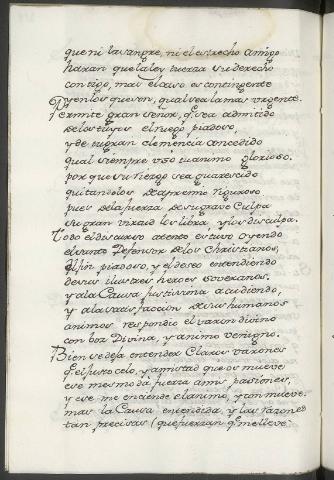 que ni la sangre, ni el estrecho Amigo
haran que la ley tuerza su derecho
contigo, mas el caso es contingente
y en los que son, qual sea la mas urgente.
Permite gran señor, q̃. sea admitido
de los tuyos el ruego piadoso,
y de tu gran clemencia concedido
qual siempre uso tu animo glorioso.
por que su riesgo sea guarescido
quitandolos de apremio riguroso
pues de la fuerza de su grave Culpa
su gran virtud los libra y los disculpa.
Todo el discurso atento estuvo oyendo
el santo Defensor de los Christianos,
el fin piadoso, y el deseo entendiendo
de sus ilustres heroes soveranos.
y a la Causa justissima acudiendo,
y a la satisfacion de sus humanos
animos, respondio el varon divino
con boz Divina, y animo venigno.
Bien se deja entender Claros varones
q̃. el justo celo, y amistad que os mueve
ese mesmo da fuerza a mis pasiones,
y ese me enciende el animo, y conmueve.
mas la Causa entendida, y las razones
tan precisas (que fuerzan q̃. me lleve